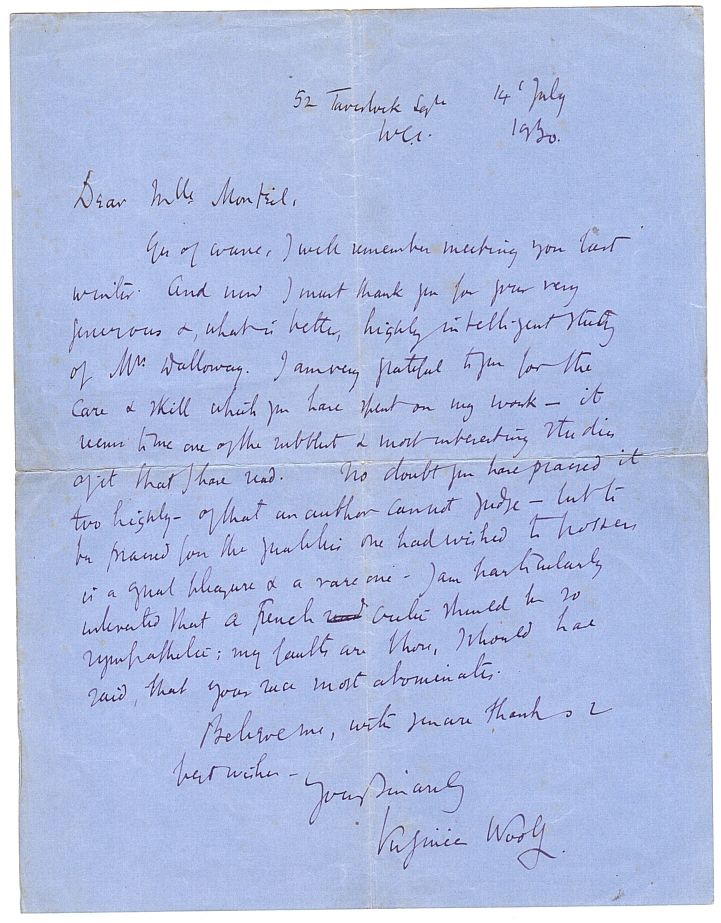 52 Tavistock Sqre 14th July
W.C.1. 1930.
Dear Mlle Monteil,
Yes of course, I well remember meeting you last
winter. And now I must thank you for your very
generous &, what is better, highly intelligent study
of Mrs Dalloway. I am very grateful to you for the
care & skill which you have spent on my work — it
seems to me one of the subtlest & most interesting studies
of it that I have read. No doubt you have praised it
too highly — of that an author cannot judge — but to
be praised for the qualities one had wished to possess
is a great pleasure & a rare one — I am particularly
interested that a French critic should be so
sympathetic; my faults are those, I should have
said, that your race most abominates.
Believe me, with sincere thanks &
best wishes —
Yours sincerely
Virginia Woolf